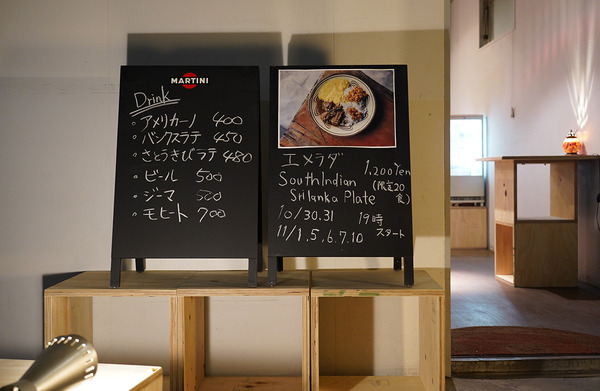 MARTINI
Drink
・アメリカーノ 400
・バンクスラテ 450
・さとうきびラテ 480
・ビール 500
・ジーマ 500
・モヒート 700
エメラダ 1,200 Yen
South Indian (限定20食)
Sri Lanka Plate
10/30.31 19時
11/1,5,6,7.10 スタート